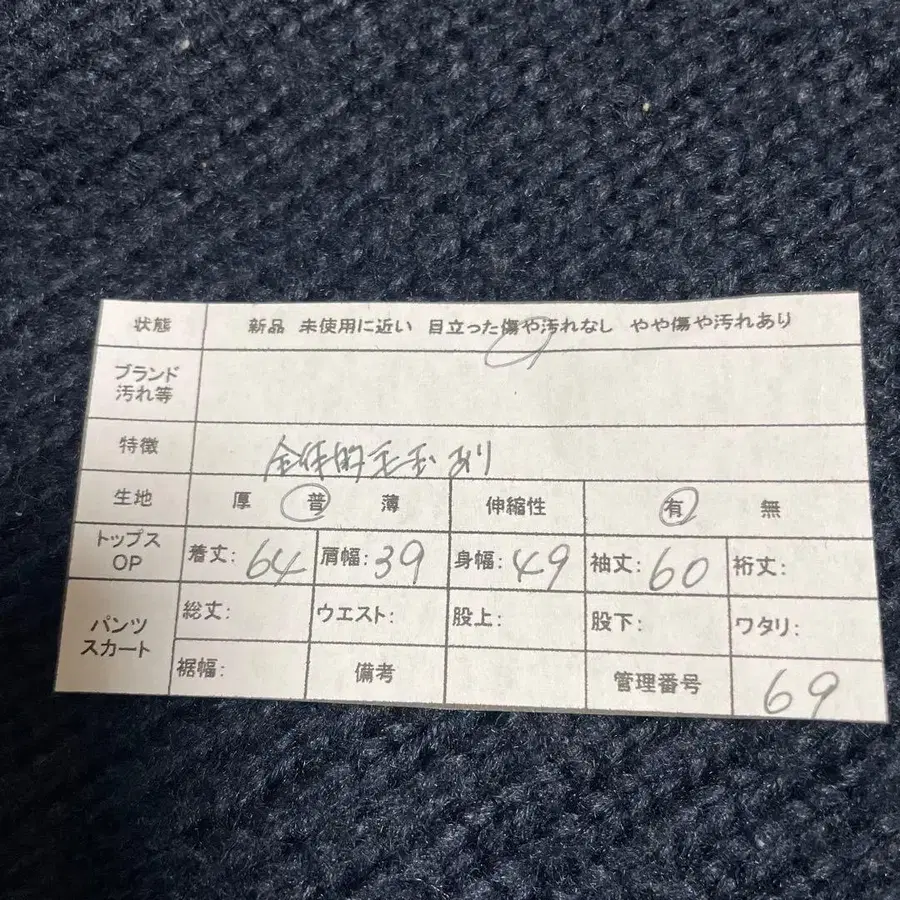 状態 新品 未使用に近い 目立った傷や汚れなし やや傷や汚れあり
ブランド
汚れ等
特徴 全体的毛玉あり
生地 厚 普 薄 伸縮性 有 無
トップス
OP 着丈: 64 肩幅: 39 身幅: 49 袖丈: 60 裄丈:
パンツ
スカート
総丈: ウエスト: 股上: 股下: ワタリ:
裾幅: 備考 管理番号 69